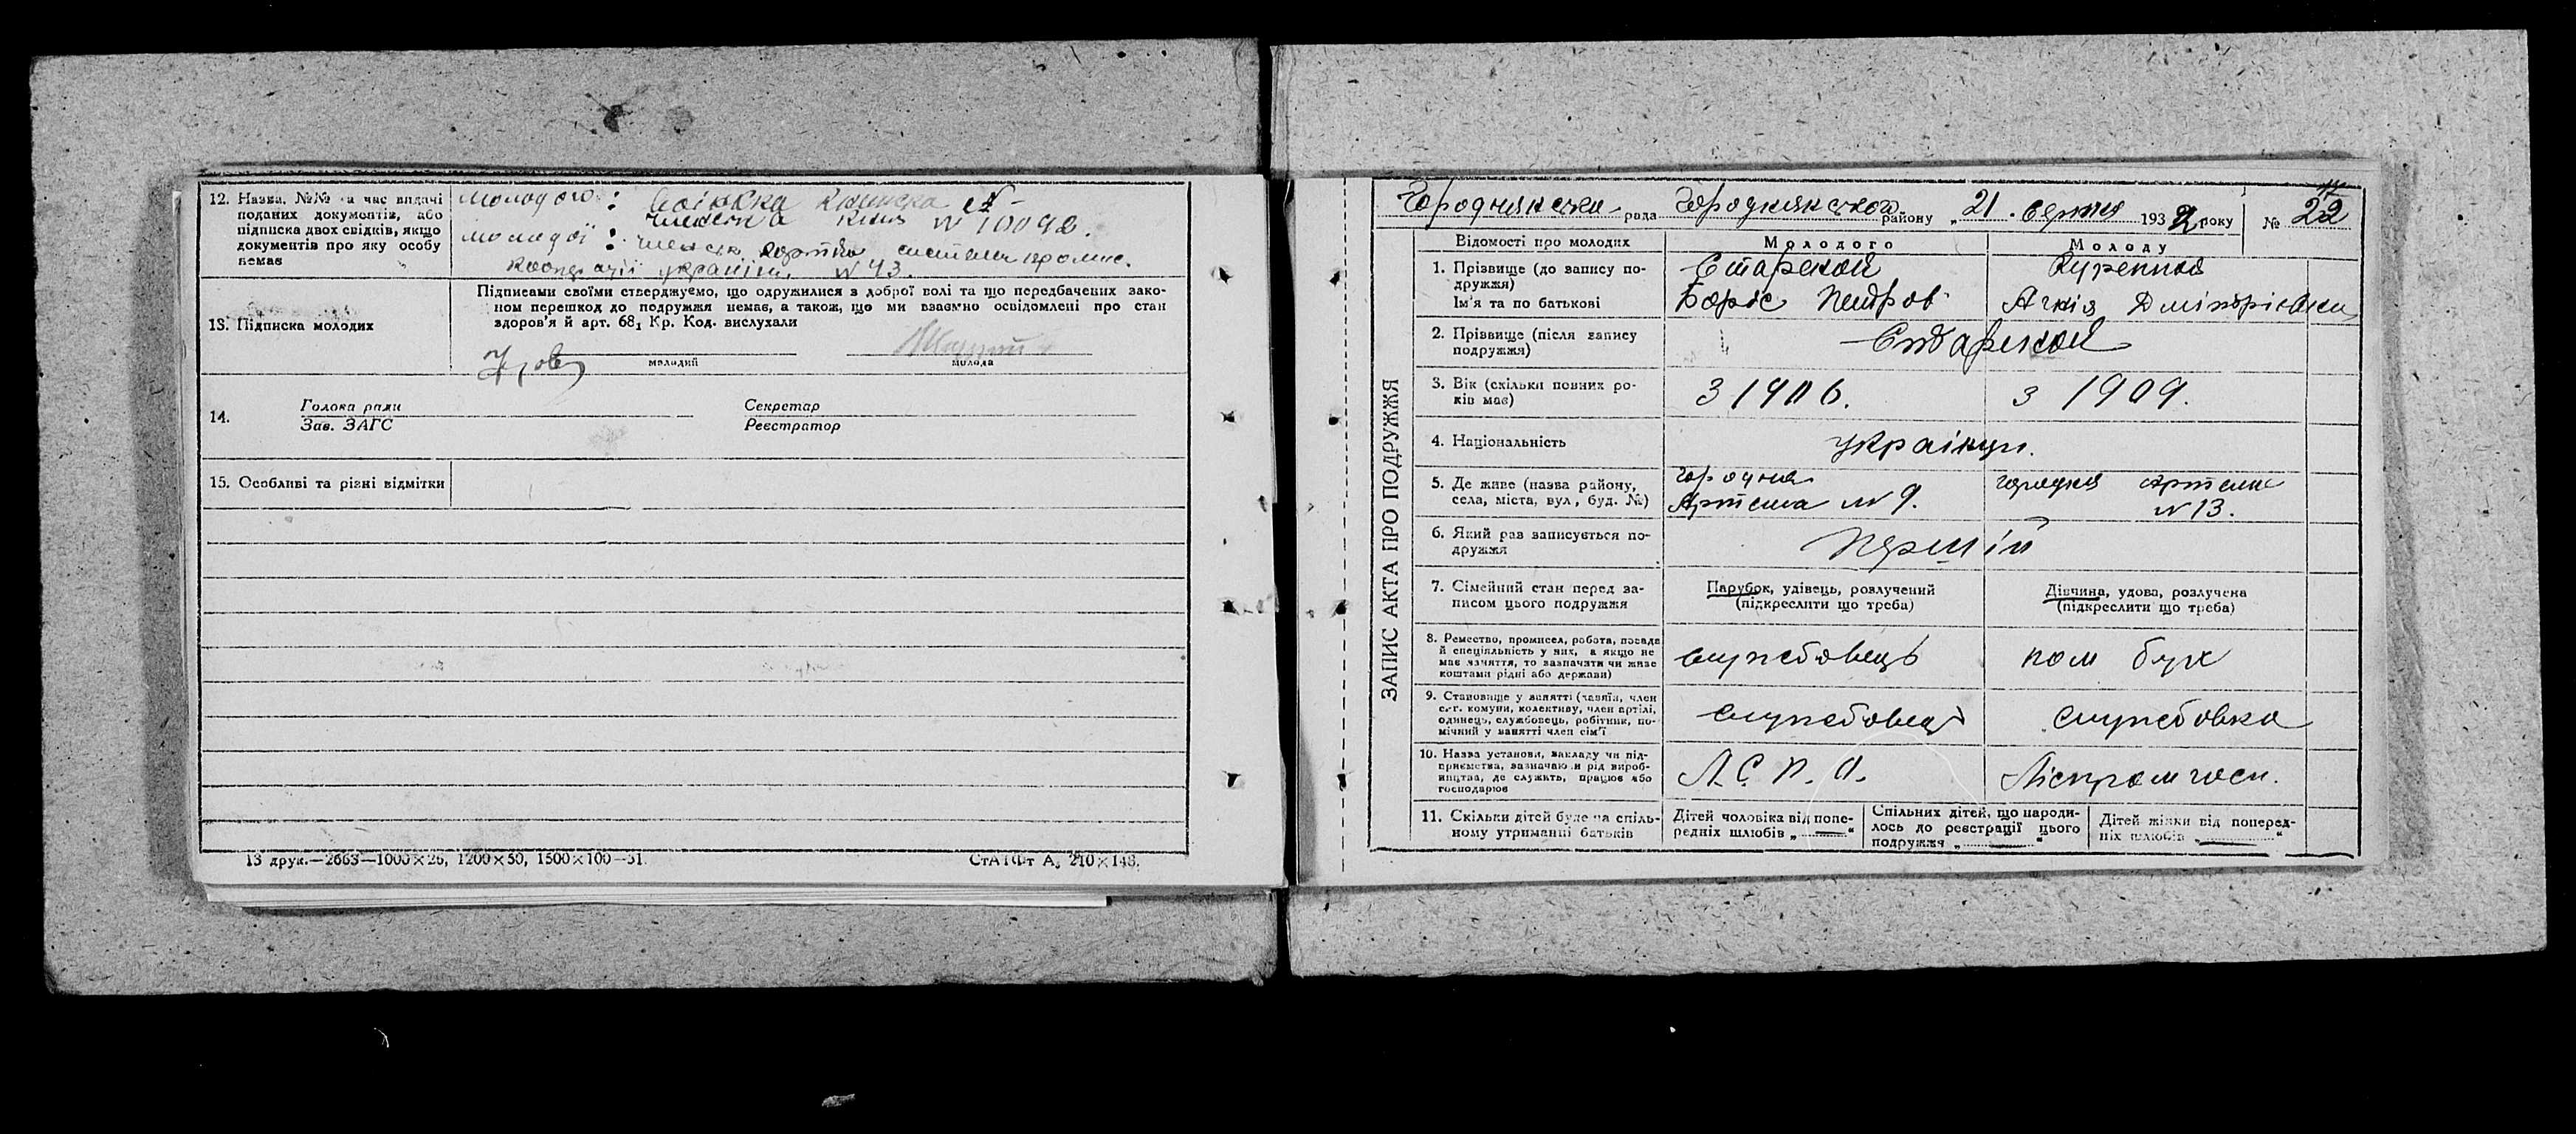 12. Назва, №№ та час видачі
поданих документів, або
підписка двох свідків, якщо
документів про яку особу
немає
молодого:
книжка № 10092.
молодої: картка
україни. № 43.
13. Підписка молодих
Підписами своїми стверджуємо, що одружилися з доброї волі та що передбачених зако-
ном перешкод до подружжя немає, а також, що ми взаємно освідомлені про стан
здоров'я й арт. 68₁ Кр. Код. вислухали
молодий
молода
14.
Голова ради
Зав. ЗАГС
Секретар
Реєстратор
15. Особливі та різні відмітки
13 друк.—2663—1000×26, 1200×50, 1500×100—31.
СтАТФт А₅ 210×148.
ЗАПИС АКТА ПРО ПОДРУЖЖЯ
Городнянська рада Городнянського району „21. серпня 1932 року № 22
Відомості про молодих
Молодого
Молоду
1. Прізвище (до запису по-
дружжя)
Ім'я та по батькові
Старской
Боріс Петров
Куренная
Дмітрієвна
2. Прізвище (після запису
подружжя)
Старской
3. Вік (скільки повних ро-
ків має)
З 1906.
з 1909.
4. Національність
українці.
5. Де живе (назва району,
села, міста, вул., буд. №)
Городня
Артема № 9.
Городня Артема
№ 13.
6. Який раз записується по-
дружжя
Перший
7. Сімейний стан перед за-
писом цього подружжя
Парубок, удівець, розлучений
(підкреслити що треба)
Дівчина, удова, розлучена
(підкреслити що треба)
8. Ремество, промисел, робота, посада
й спеціяльність у них, а якщо не
має заняття, то зазначити чи живе
коштами рідні або держави)
службовець
пом бух
9. Становище у занятті (хазяїн, член
с.-г. комуни, колективу, член артілі,
одинець, службовець, робітник, по-
мічний у занятті член сім'ї
службовець
службовка
10. Назва установи, закладу чи під-
приємства, зазначаючи рід вироб-
ництва, де служить, працює або
господарює
Л.С.П.О.
Ліспромгосп.
11. Скільки дітей буде на спіль-
ному утриманні батьків
Дітей чоловіка від попе-
редніх шлюбів „—“
Спільних дітей, що народи-
лось до реєстрації цього
подружжя „—“
Дітей жінки від поперед-
ніх шлюбів „—“